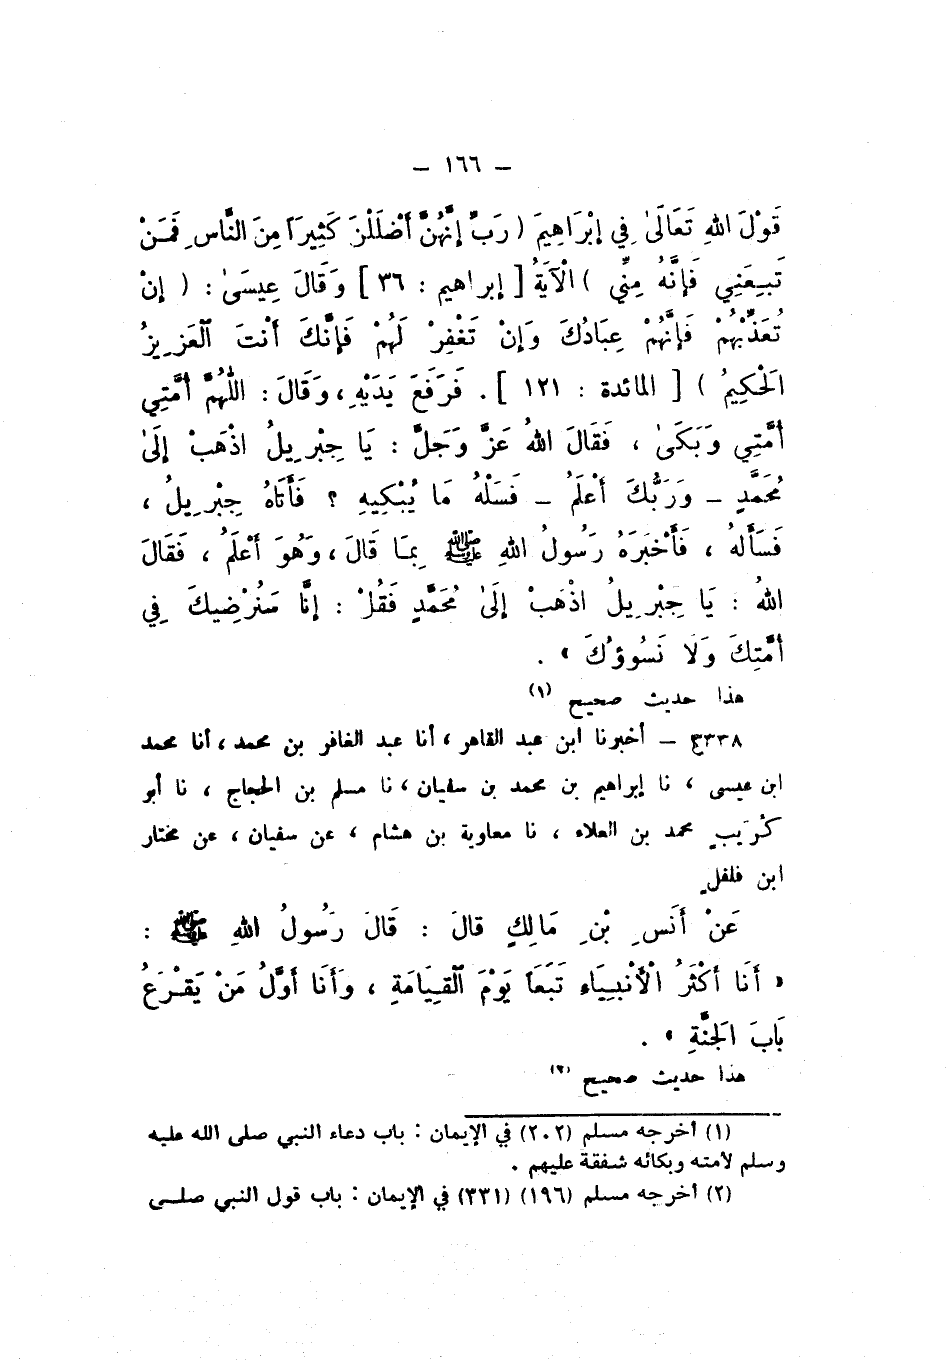 – ١٦٦ –
قَوْلَ اللهِ تَعَالَىٰ فِي إبْرَاهِيمَ ( رَبِّ إنَّهُنَّ أَضْلَلْنَ كَثِيرَاً مِنَ النَّاسِ فَمَنْ
تَبِعَنِي فَإنَّهُ مِنِّي ) الْآيَةُ [ إبراهيم : ٣٦ ] وَقَالَ عِيسَىٰ : ( إنْ
تُعَذِّبْهُمْ فَإنَّهُمْ عِبَادُكَ وَإنْ تَغْفِرْ لَهُمْ فَإنَّكَ أَنْتَ الْعَزِيزُ
الْحَكِيمُ ) [ المائدة : ١٢١ ] . فَرَفَعَ يَدَيْهِ ، وَقَالَ : اللّٰهُمَّ أُمَّتِي
أُمَّتِي وَبَكَىٰ ، فَقَالَ اللهُ عَزَّ وَجَلَّ : يَا جِبْرِيلُ اذْهَبْ إلَىٰ
مُحَمَّدٍ – وَرَبُّكَ أَعْلَمُ – فَسَلْهُ مَا يُبْكِيهِ ؟ فَأَتَاهُ جِبْرِيلُ ،
فَسَأَلَهُ ، فَأَخْبَرَهُ رَسُولُ اللهِ ﷺ بِمَا قَالَ ، وَهُوَ أَعْلَمُ ، فَقَالَ
اللهُ : يَا جِبْرِيلُ اذْهَبْ إلَىٰ مُحَمَّدٍ فَقُلْ : إنَّا سَنُرْضِيكَ فِي
أُمَّتِكَ وَلَا نَسُوؤُكَ » .
هذا حديث صحيح (١)
٤٣٣٨ – أخبرنا ابن عبد القاهر ، أنا عبد الغافر بن محمد ، أنا محمد
ابن عيسى ، نا إبراهيم بن محمد بن سفيان ، نا مسلم بن الحجاج ، نا أبو
كُرَيبٍ محمد بن العلاء ، نا معاوية بن هشام ، عن سفيان ، عن مختار
ابن فلفلٍ
عَنْ أَنَسِ بْنِ مَالِكٍ قالَ : قَالَ رَسُولُ اللهِ ﷺ :
« أَنَا أَكْثَرُ الْأَنْبِيَاءِ تَبَعَاً يَوْمَ الْقِيَامَةِ ، وَأَنَا أَوَّلُ مَنْ يَقْرَعُ
بَابَ الْجَنَّةِ » .
هذا حديث صحيح (٢)
(١) أخرجه مسلم (٢٠٢) في الإيمان : باب دعاء النبي صلى الله عليه
وسلم لأمته وبكائه شفقة عليهم .
(٢) أخرجه مسلم (١٩٦) (٣٣١) في الإيمان : باب قول النبي صلى